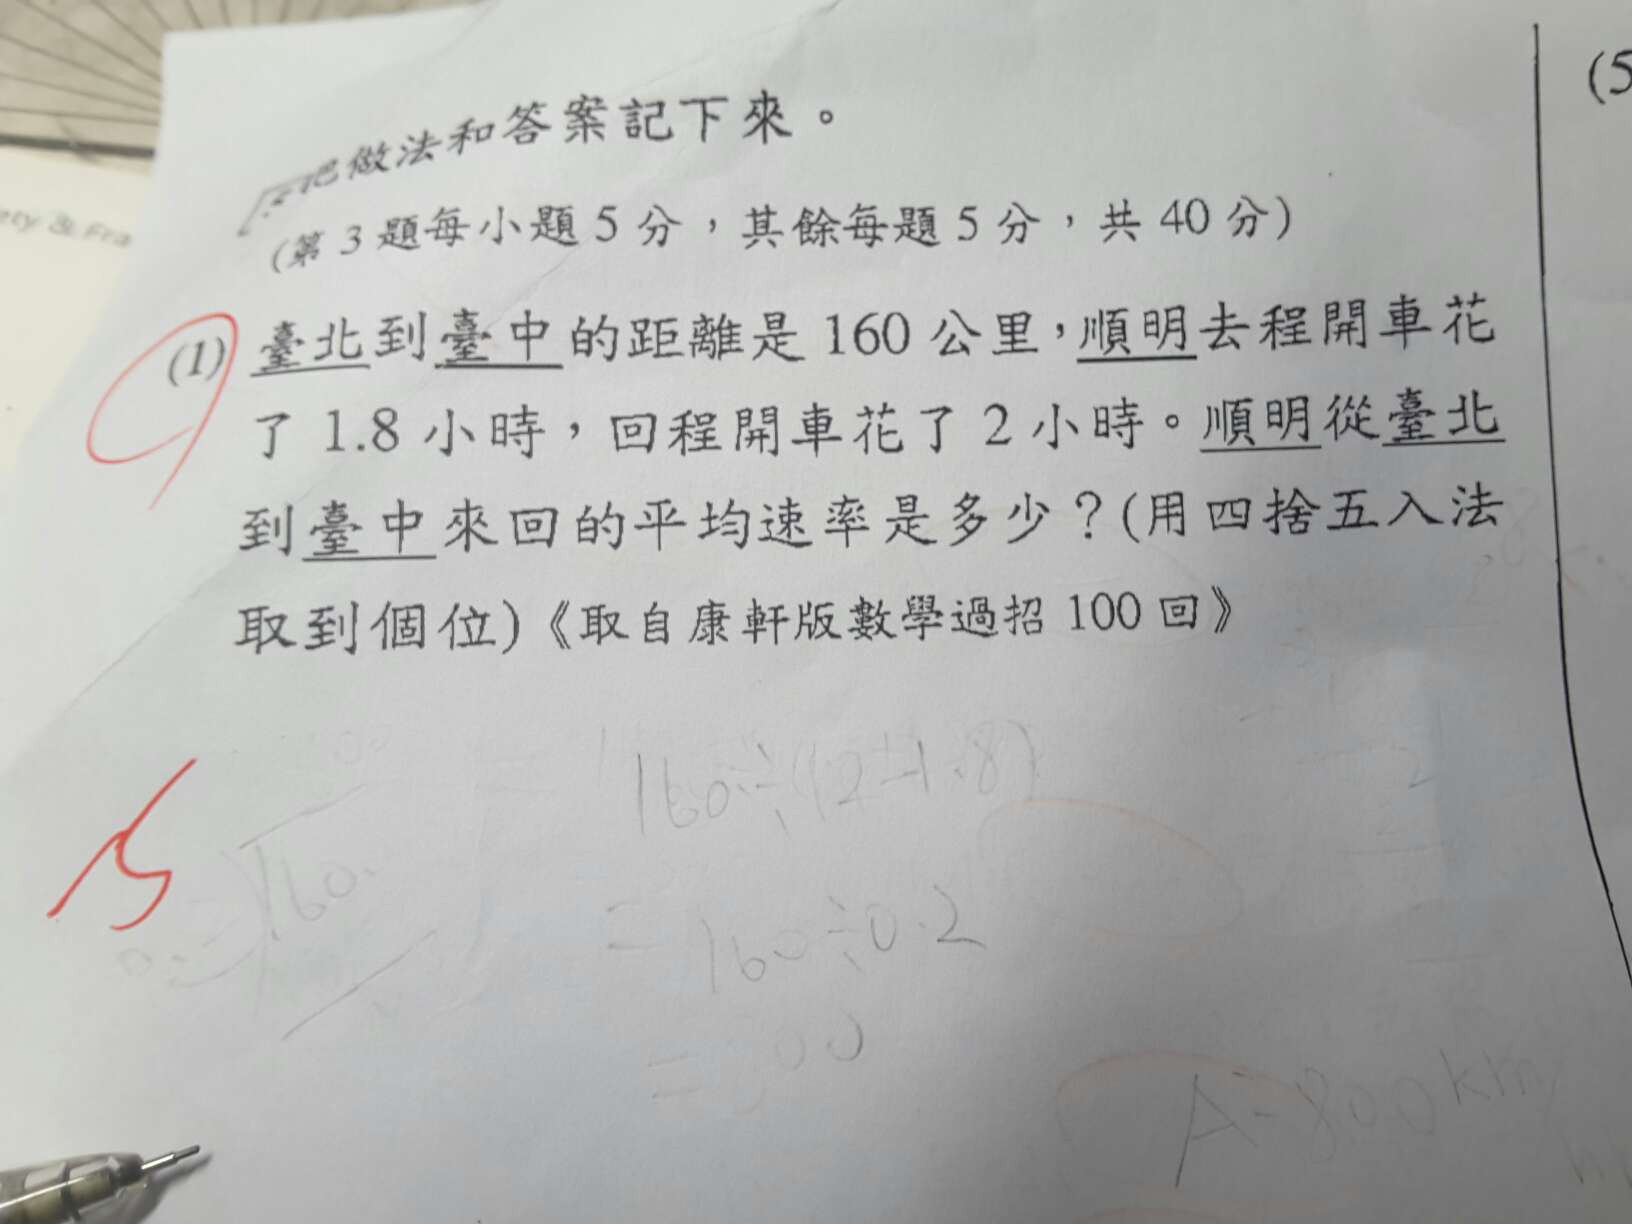 把做法和答案記下來。
(第3題每小題5分,其餘每題5分,共40分)
(5
(1) 臺北到臺中的距離是160公里,順明去程開車花
了1.8小時,回程開車花了2小時。順明從臺北
到臺中來回的平均速率是多少?(用四捨五入法
取到個位)《取自康軒版數學過招100回》
160÷(2-1.8)
=160÷0.2
160
A=800km